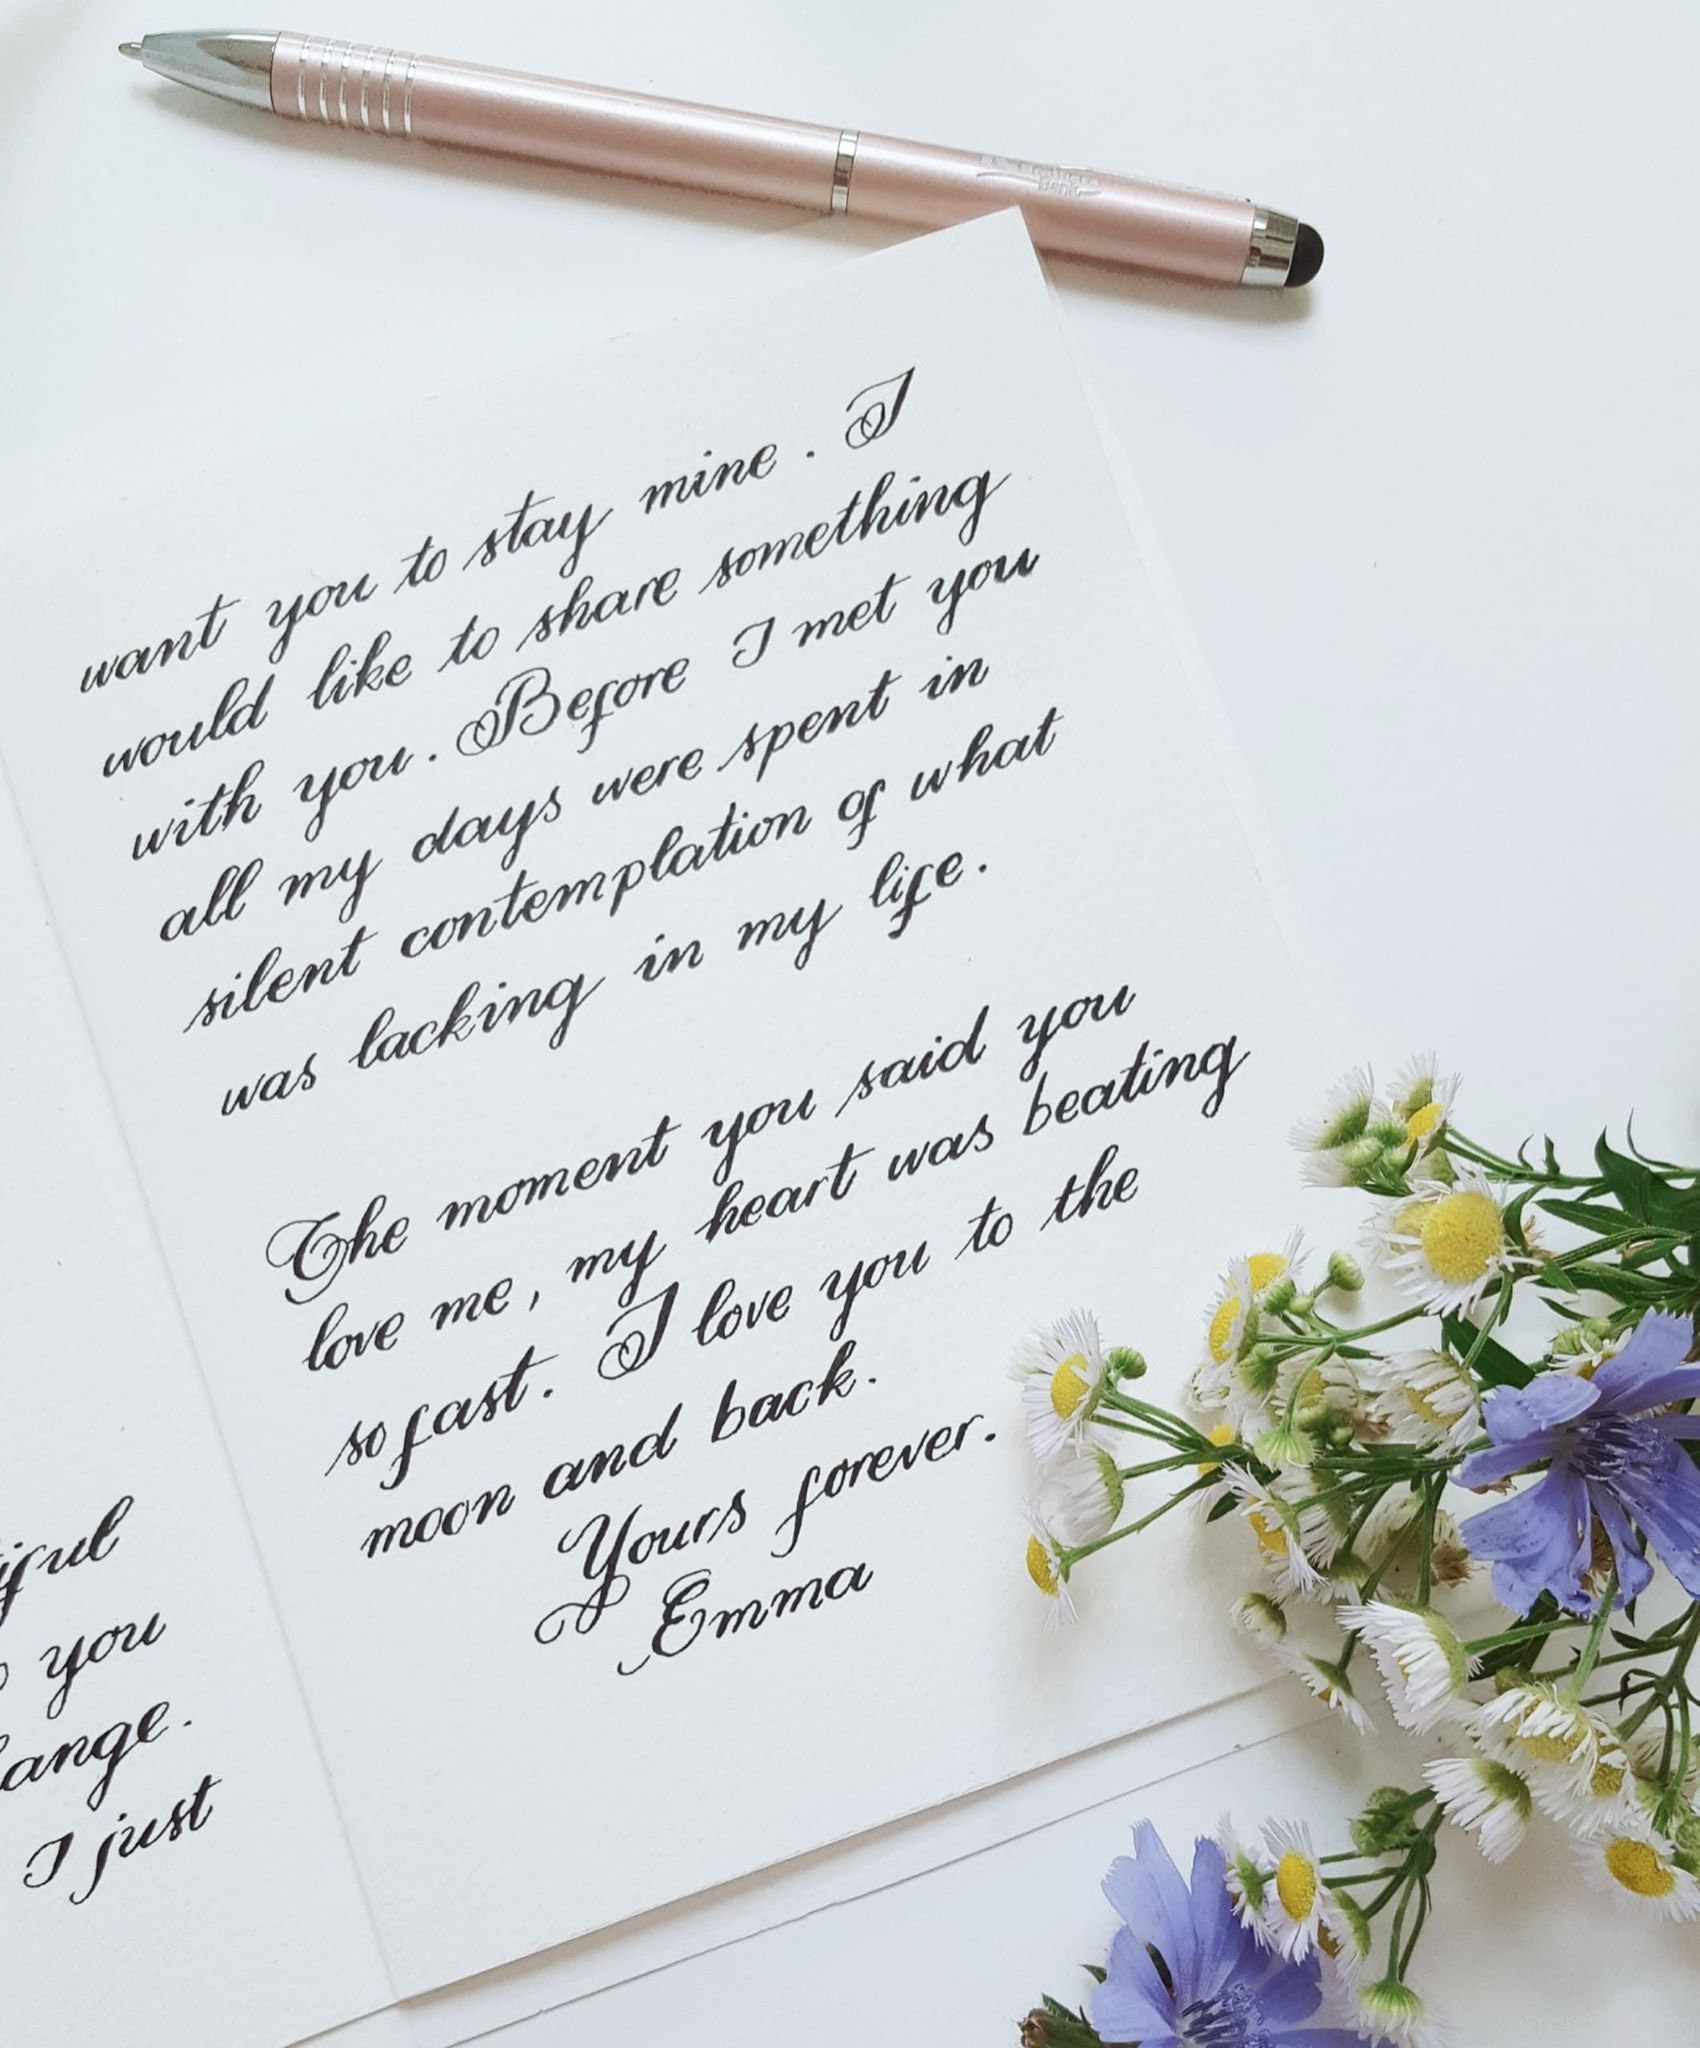 want you to stay mine. I
would like to share something
with you. Before I met you
all my days were spent in
silent contemplation of what
was lacking in my life.
The moment you said you
love me, my heart was beating
so fast. I love you to the
moon and back.
Yours forever.
Emma
you
I just